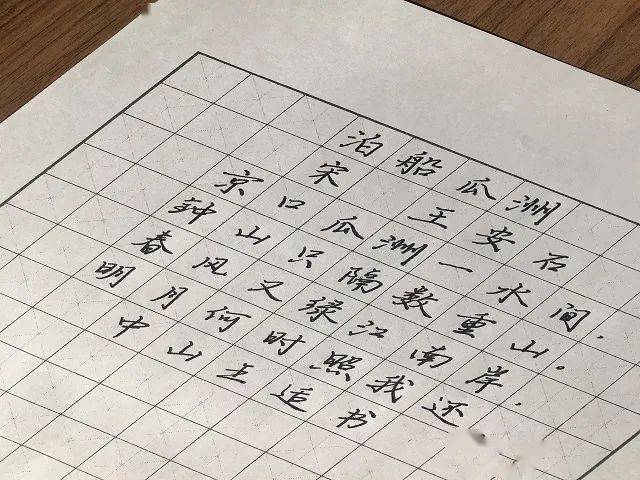 泊船瓜洲
宋 王安石
京口瓜洲一水间,
钟山只隔数重山。
春风又绿江南岸,
明月何时照我还
中山王追书